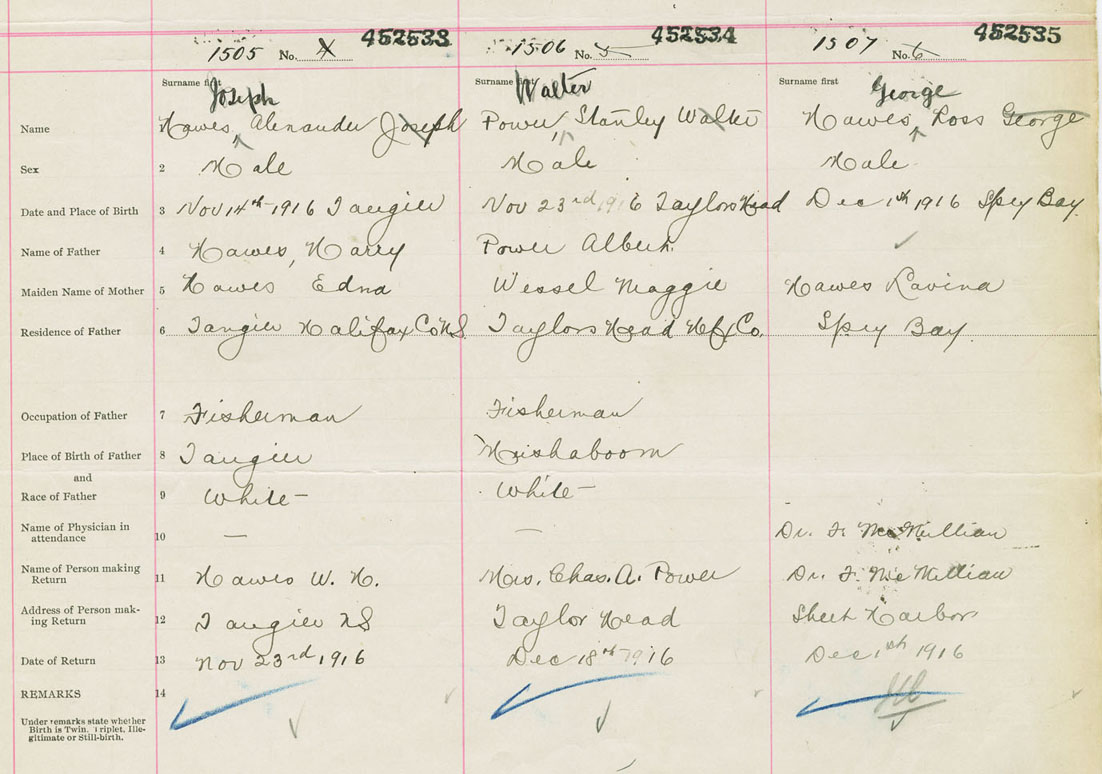 1505 No. 4 452533 1506 No. 5 452534 1507 No. 6 452535
Surname first Surname first Surname first
Joseph Walter George
Name Hawes, Alexander Joseph Power, Stanley Walter Hawes, Ross George
Sex 2 Male Male Male
Date and Place of Birth 3 Nov 14th 1916 Tangier Nov 23rd 1916 Taylors Head Dec 1th 1916 Spry Bay
Name of Father 4 Hawes, Harry Power Albert
Maiden Name of Mother 5 Hawes Edna Wessel Maggie Hawes Lavina
Residence of Father 6 Tangier Halifax Co NS Taylors Head Hfx Co. Spry Bay
Occupation of Father 7 Fisherman Fisherman
Place of Birth of Father 8 Tangier Mushaboom
and
Race of Father 9 White – White –
Name of Physician in
attendance 10 — — Dr. F. McMillian
Name of Person making
Return 11 Hawes W. H. Mrs. Chas. A. Power Dr. F. McMillian
Address of Person mak-
ing Return 12 Tangier NS Taylor Head Sheet Harbor
Date of Return 13 Nov 23rd, 1916 Dec 18th 1916 Dec 1th 1916
REMARKS 14
Under remarks state whether
Birth is Twin, Triplet, Ille-
gitimate or Still-birth.